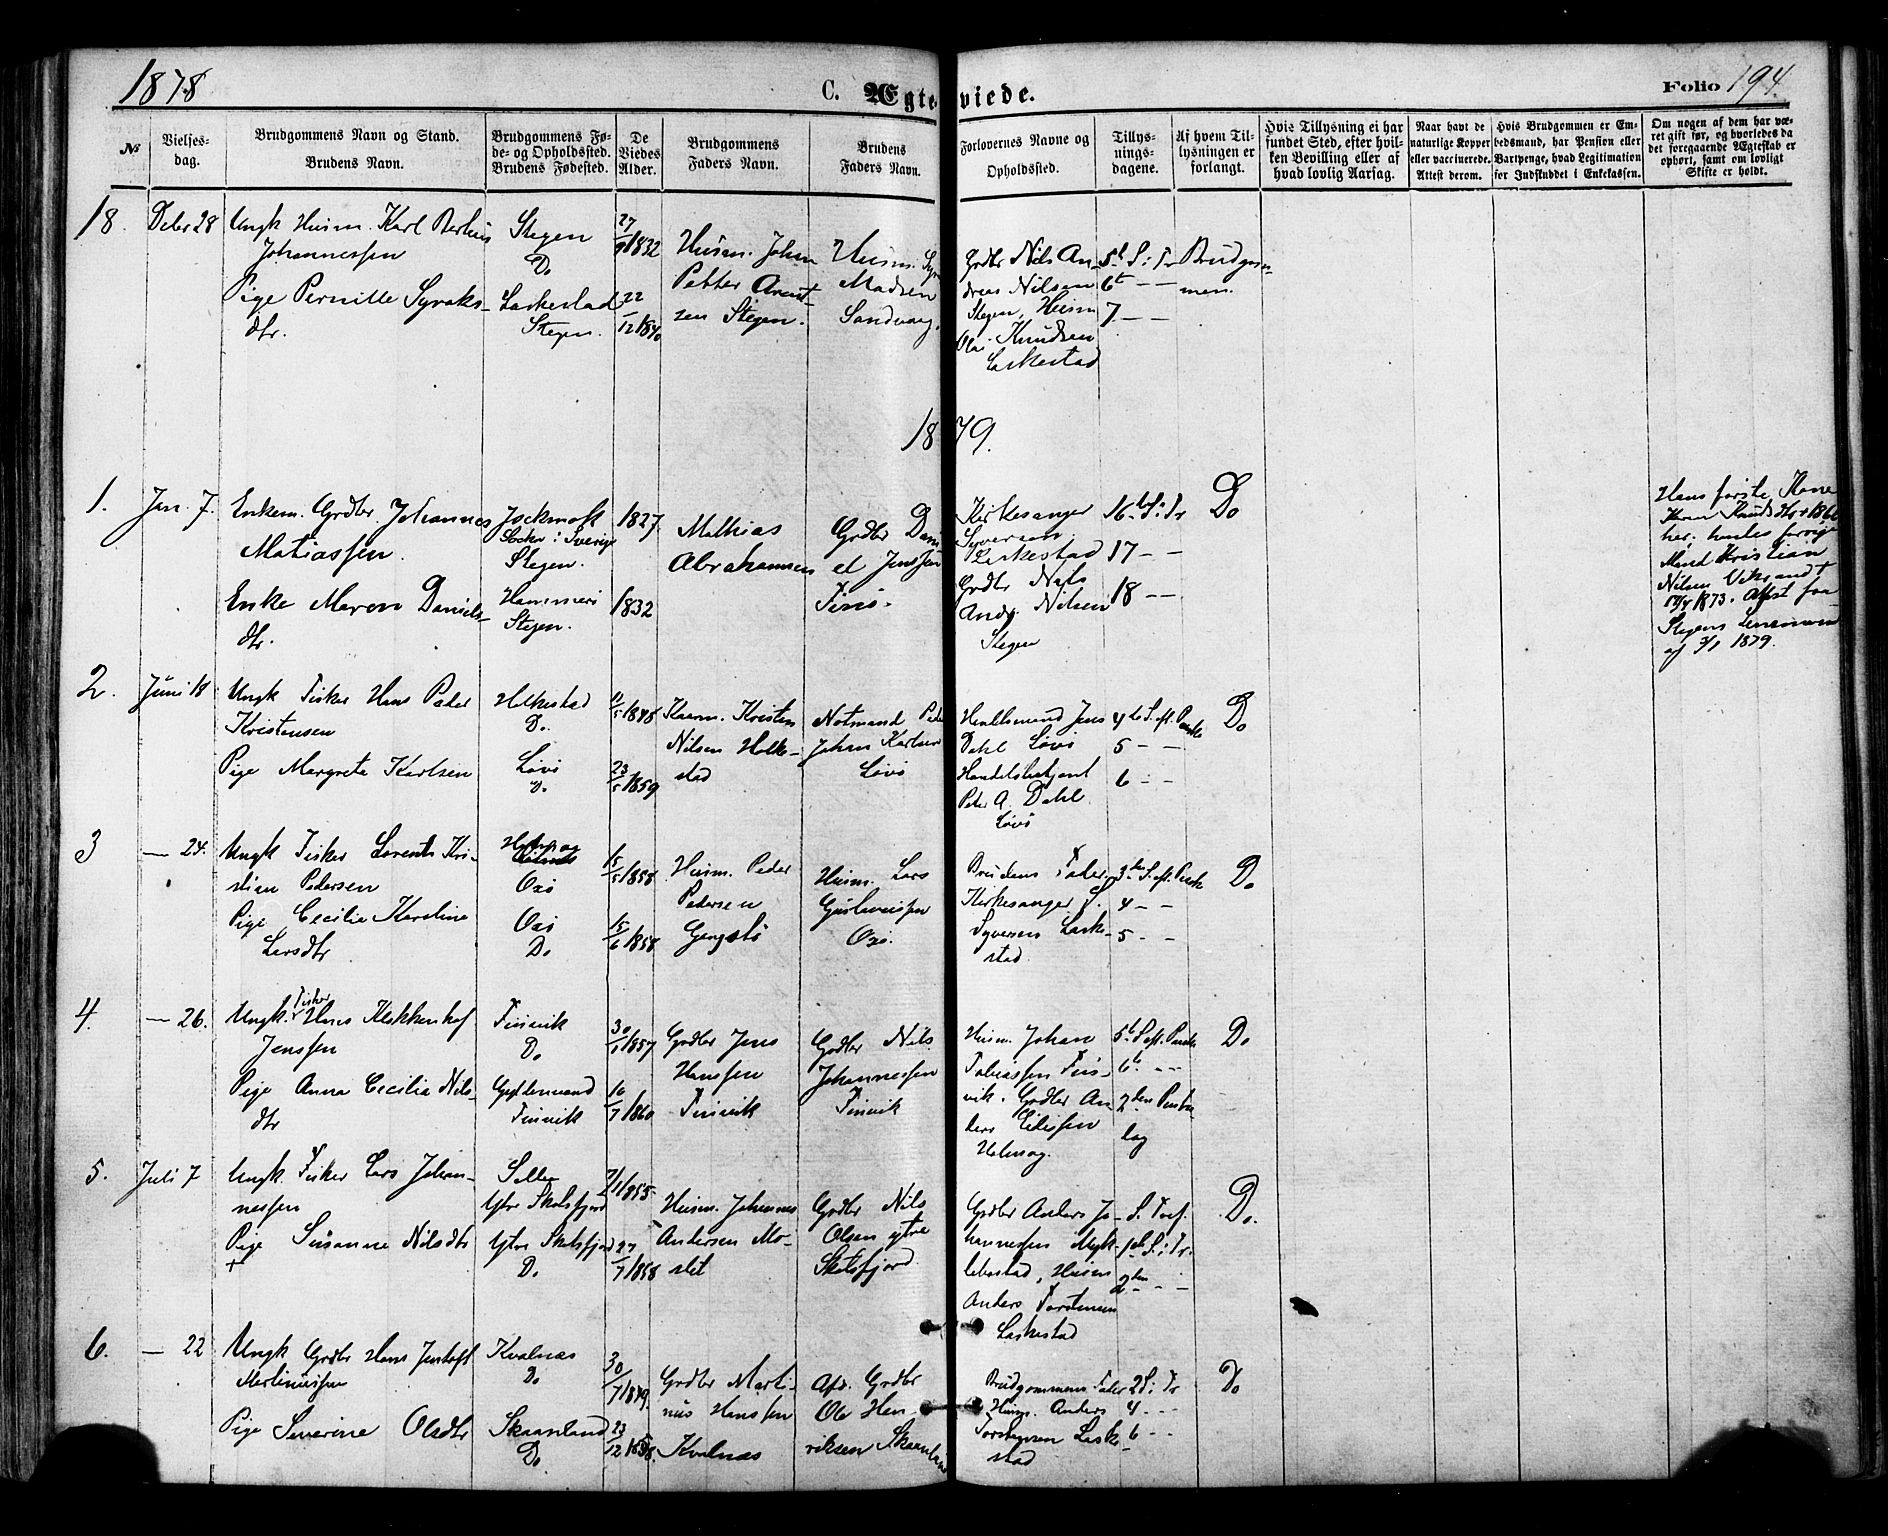 1878
C. Ægteviede.
Folio 194.
№
Vielses-
dag.
Brudgommens Navn og Stand.
Brudens Navn.
Brudgommens Fø-
de- og Opholdssted.
Brudens Fødested.
De
Viedes
Alder.
Brudgommens
Faders Navn.
Brudens
Faders Navn.
Forlovernes Navne og
Opholdssted.
Tillys-
nings-
dagene.
Af hvem Til-
lysningen er
forlangt.
Hvis Tillysning ei har
fundet Sted, efter hvil-
ken Bevilling eller af
hvad lovlig Aarsag.
Naar havt de
naturlige Kopper
eller vaccinerede.
Attest derom.
Hvis Brudgommen er Em-
bedsmand, har Pension eller
Vartpenge, hvad Legitimation
for Indskuddet i Enkekassen.
Om nogen af dem har væ-
ret gift før, og hvorledes da
det foregaaende Ægteskab er
ophørt, samt om lovligt
Skifte er holdt.
18.
Deber 28
Ungk Husm. Karl
Johannessen
Pige Pernille Syraks-
dtr.
Stegen
Do
Laskestad
Stegen.
27/9 1832
22/12 1840
Husm. Johan
Petter Arent-
zen Stegen.
Husm.
Madsen
Sandvaag.
Grdbr Nils An-
dreas Nilsen
Stegen, Husm
Ola Knudsen
Laskestad
5t S. i Tr
6t — —
7 — —
Brudgom-
men.
1879.
1.
Jan. 7.
Enkem. Grdbr Johannes
Matiassen.
Enke Maren Daniels-
dtr.
Jockmok
Sockn i Sverige
Stegen.
Hammeri
Stegen.
1827
1832
Mathias
Abrahamsen
Grdbr Dani
el Jenssen
Kirkesanger
Syversen
Laskestad
Grdbr Nils
Andr. Nilsen
Stegen
16te S. i Tr
17 — —
18 — —
Do
Hans første Kone
Knudsdtr
her. hendes forrige
Mand Kristian
Nilsen
1873. Attest fra
Stegens Lensmand
af 3/1 1879.
2.
Juni 18
Ungk Fisker Hans Peder
Kristensen
Pige Margreta Karlsen
Helkestad
Do.
Løvø
Do
1848
23/5 1859
Kaarm. Kristen
Nilsen Helke-
stad
Notmand Peder
Johan Karlsen
Løvø
Handelsmand Jens
Dahl Løvø
Handelsbetjent
Peter A. Dahl
Løvø
4de S. ef. Paaske
5 — —
6 — —
Do
3
— 24.
Ungk Fisker Lorents Kri-
stian Pedersen
Pige Cecilia Karoline
Larsdtr
Oxø
Oxø
Do
15/5 1858
15/6 1858
Husm. Peder
Pedersen
Husm. Lars
Gustavussen
Oxø.
Brudens Fader
Kirkesanger S.
Syversen Laske-
stad
3die S. ef. Paaske
4 — —
5 — —
Do
4.
— 26.
Ungk. Fisker Hans
Jenssen
Pige Anna Cecilia Nils-
dtr
Finvik
Do
Finvik
1857
16/7 1860
Grdbr Jens
Hanssen
Finvik
Grdbr Nils
Johannessen
Finvik
Husm. Johan
Tobiassen Fin-
vik. Grdbr An-
ders
Holmag.
5t S. ef. Paaske
6t — —
2den Pintse
dag
Do
5.
Juli 7
Ungk Fisker Lars Johan-
nessen
Pige Susanne Nilsdtr
+
Ytre Skotsfjord
Ytre Skotsfjord
Do
1855
27/7 1858
Husm. Johannes
Andersen Mo-
slet
Grdbr Nils
Olsen ytre
Skotsfjord
Grdbr Anders Jo-
hannessen Myk-
lebostad, Husm
Anders
Laskestad
S. Tref.
1ste S. i Tr.
2den — —
Do.
6.
— 22
Ungk Grdbr Hans Jentoft
Martinussen
Pige Severine Olsdtr
Kvalnæs
Do
Skaanland
Do
30/7 1849.
23/12 1858.
Grdbr Marti-
nus Hanssen
Kvalnæs
Afd. Grdbr
Ole Hen-
riksen Skaanland
Brudgommens Fader
Husm. Anders
Torstensen Laske-
stad
2 S. i Tr
4 — —
6 — —
Do